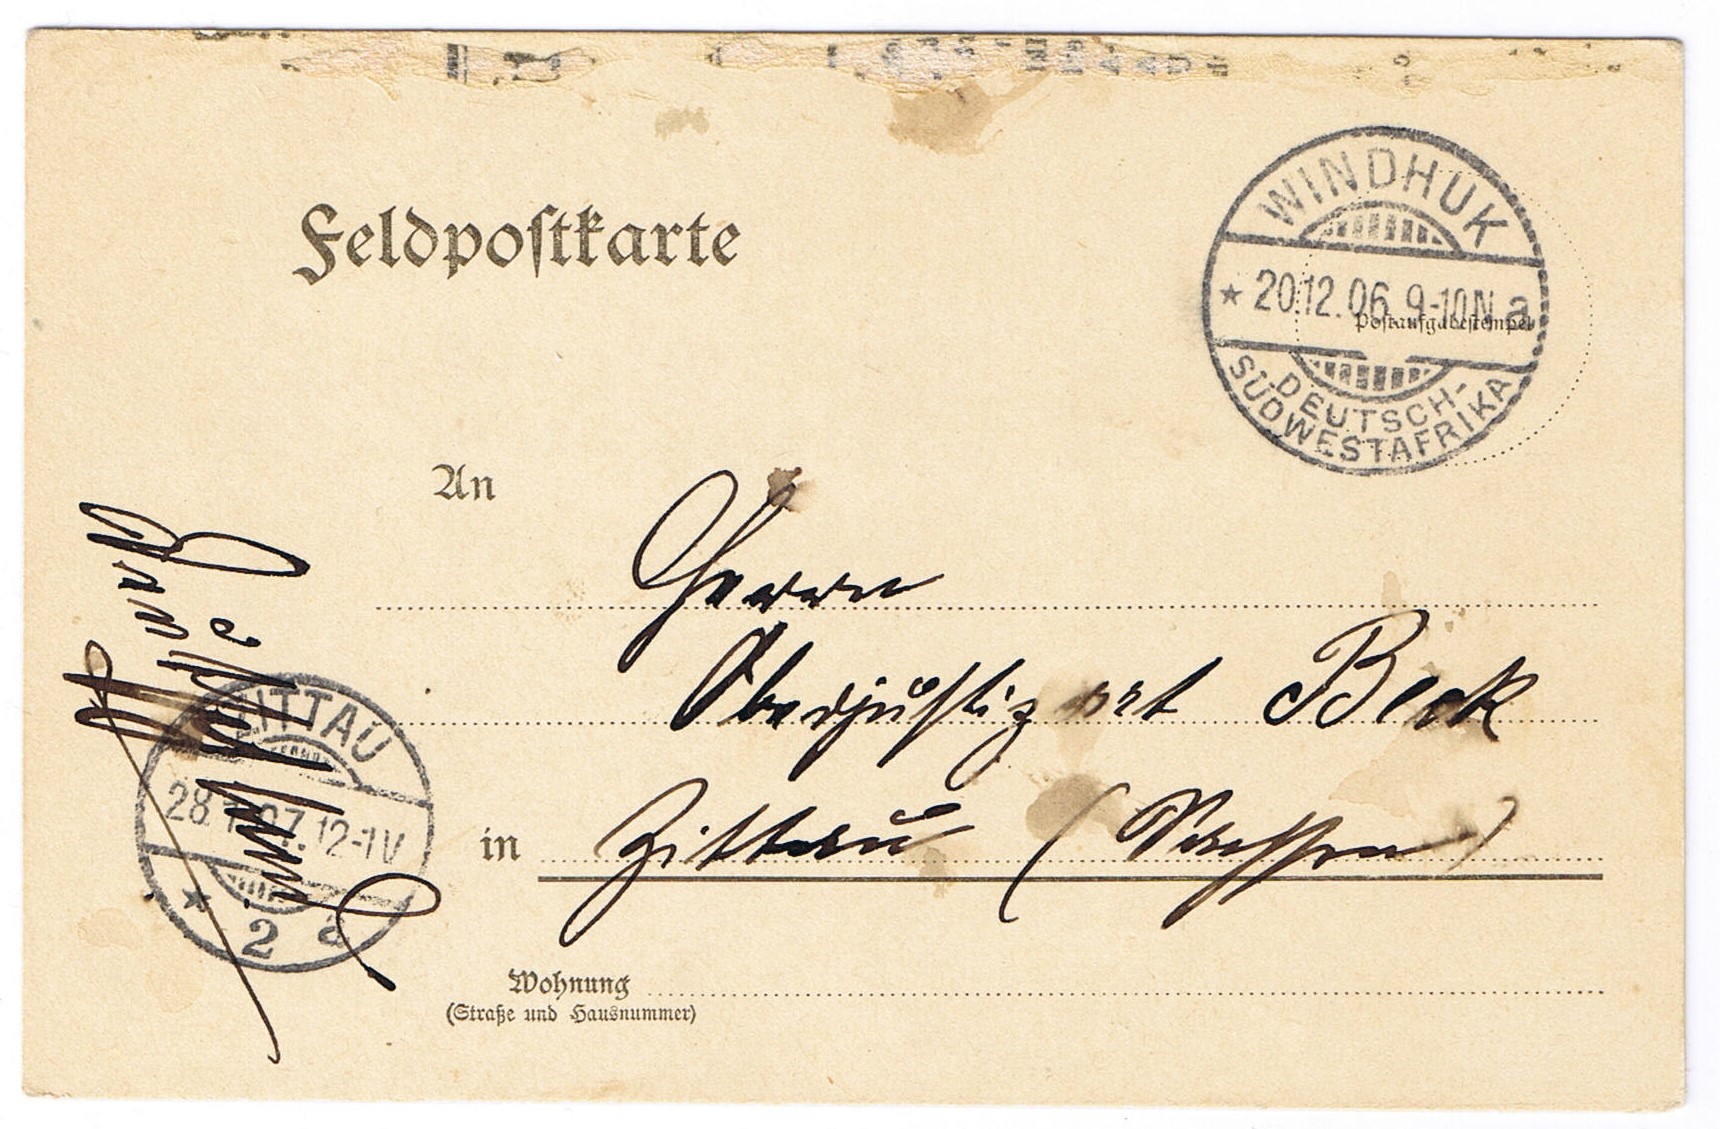 Feldpostkarte
WINDHUK
* 20.12.06. 9-10N. a
DEUTSCH-
SÜDWESTAFRIKA
Postaufgabestempel
An
Herrn
Oberjustizrat Beck
in Zittau (Sachsen)
Wohnung
(Straße und Hausnummer)
ZITTAU
28. 07. 12-1V
* 2 a